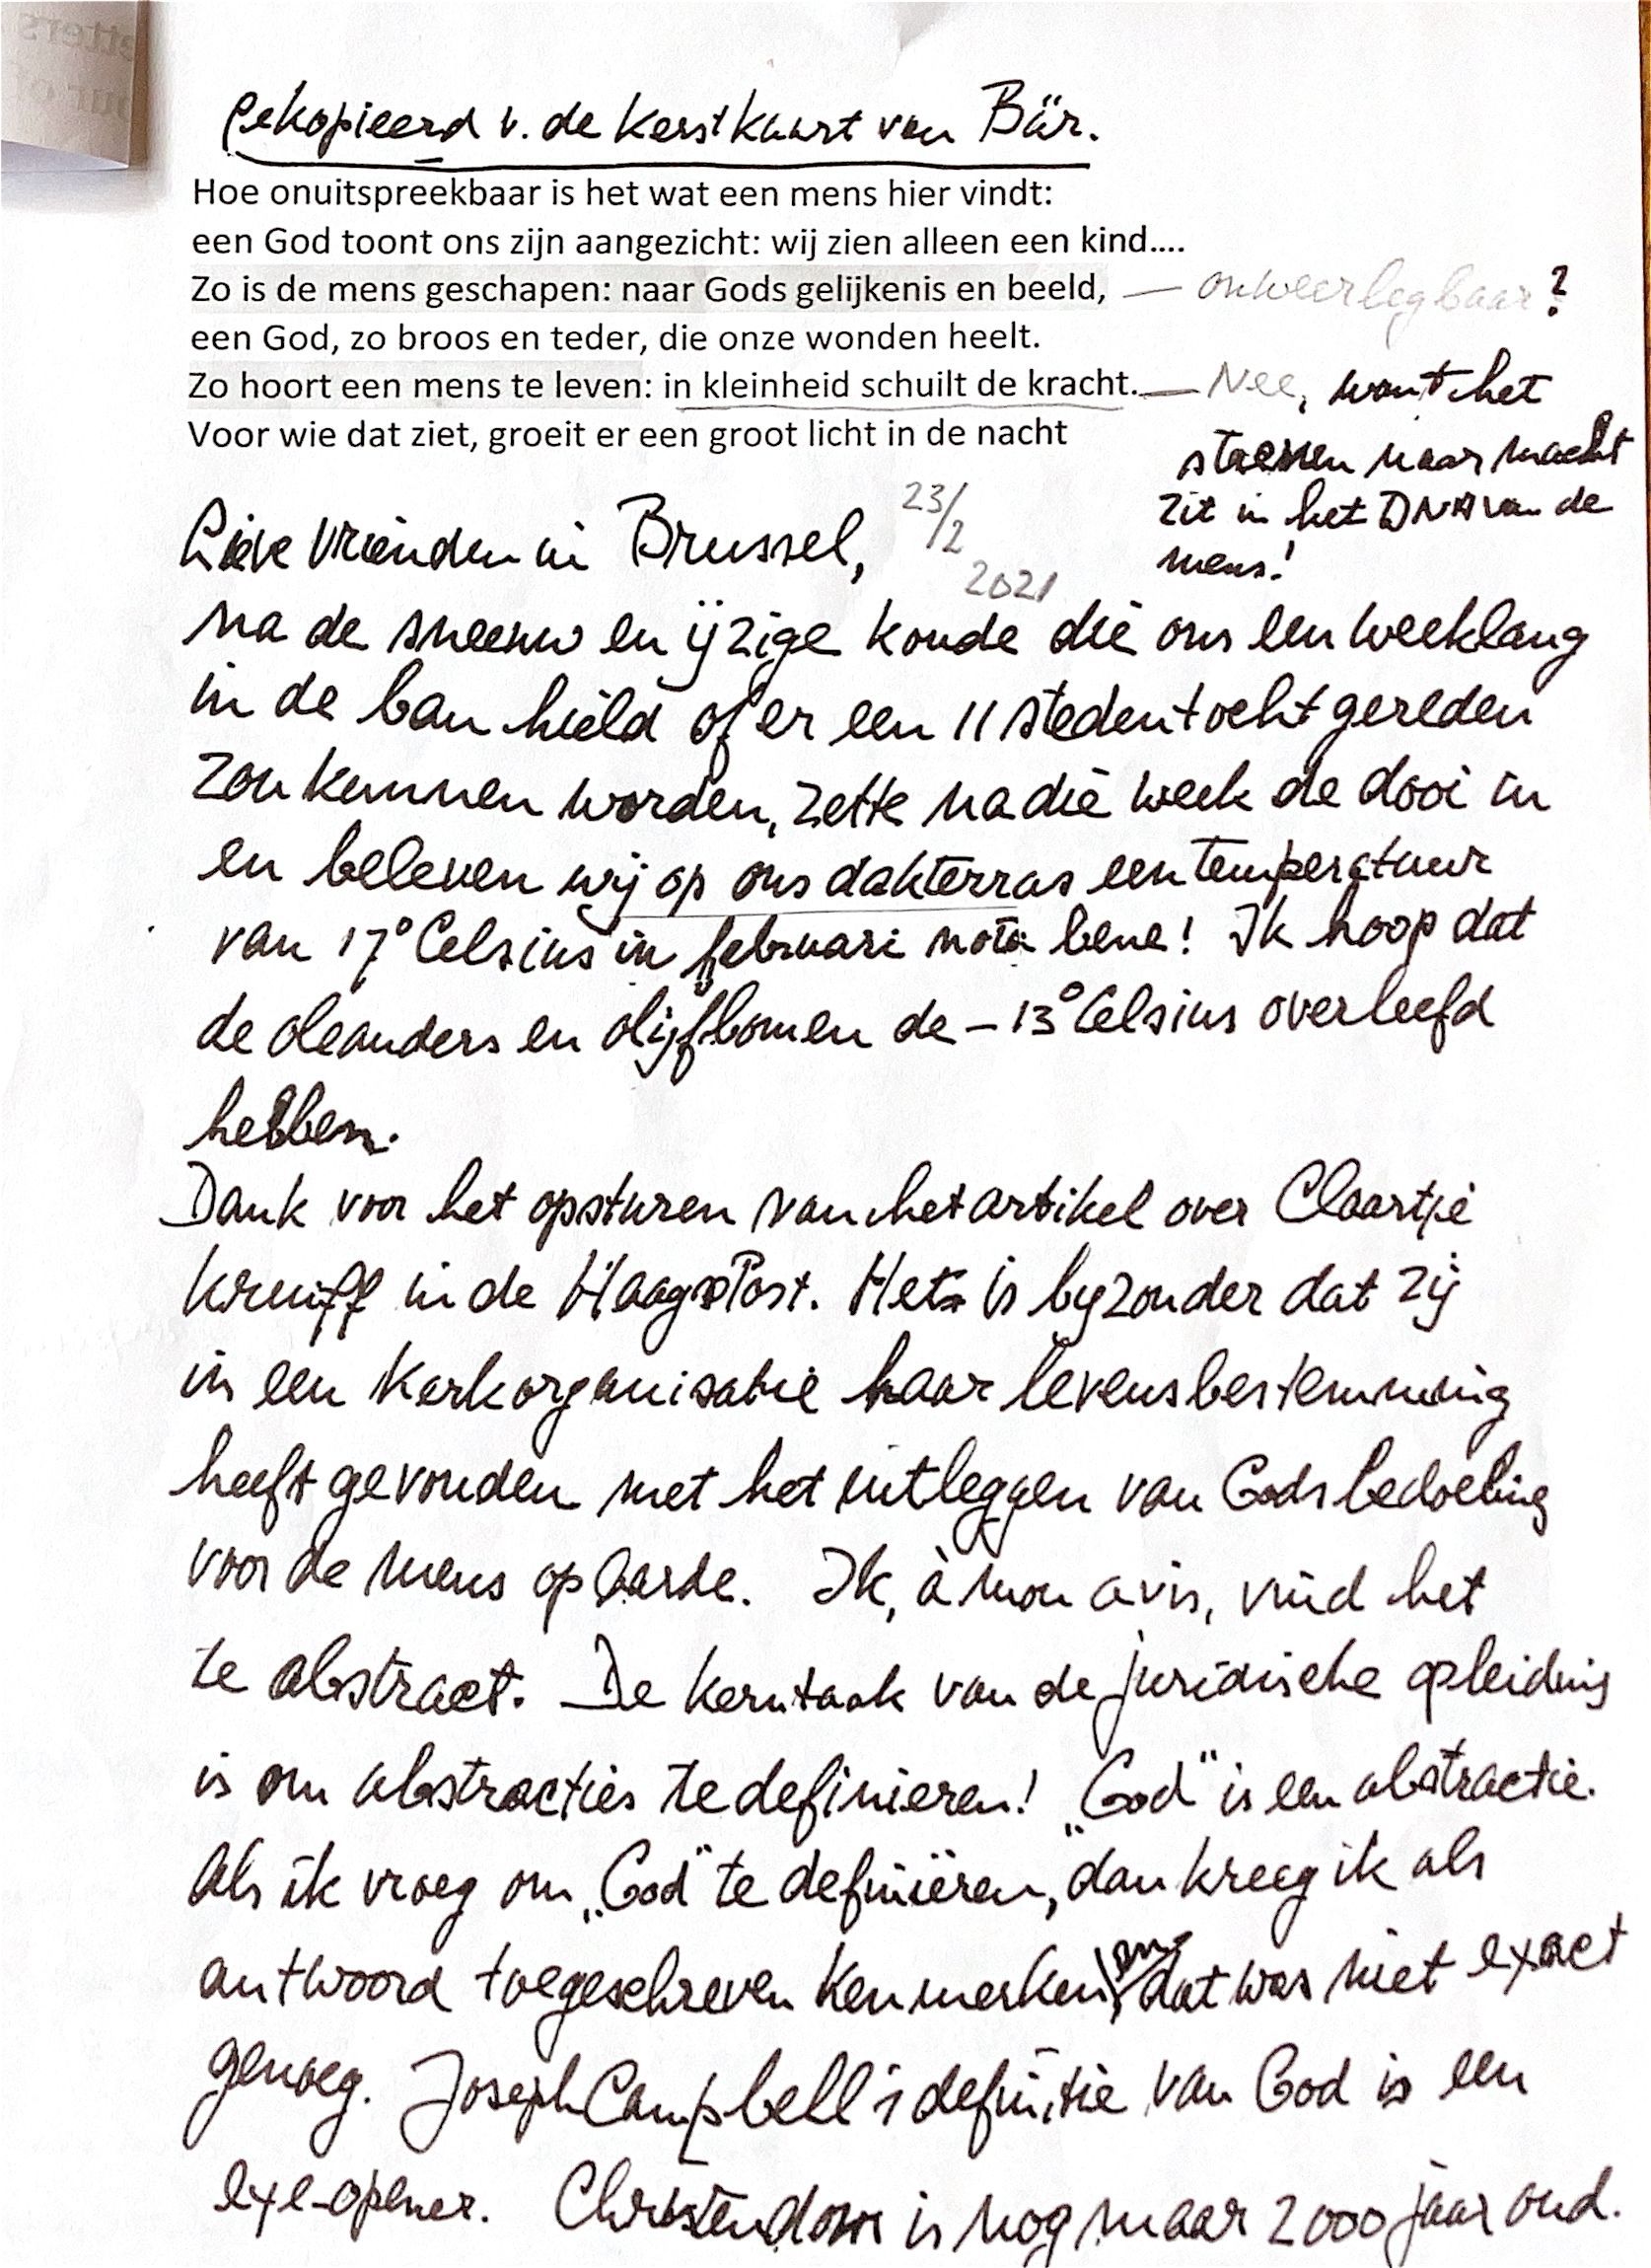 Gekopieerd v. de Kerstkaart van Bär.
Hoe onuitspreekbaar is het wat een mens hier vindt:
een God toont ons zijn aangezicht: wij zien alleen een kind....
Zo is de mens geschapen: naar Gods gelijkenis en beeld, — onweerlegbaar?
een God, zo broos en teder, die onze wonden heelt.
Zo hoort een mens te leven: in kleinheid schuilt de kracht. — Nee, want het
Voor wie dat ziet, groeit er een groot licht in de nacht
streven naar macht
zit in het DNA van de
mens!
Lieve vrienden in Brussel, 23/2
2021
na de sneeuw en ijzige koude die ons een weeklang
in de ban hield of er een 11 stedentocht gereden
zou kunnen worden, zette na die week de dooi in
en beleven wij op ons dakterras een temperatuur
van 17° Celsius in februari nota bene! Ik hoop dat
de oleanders en olijfbomen de -13° Celsius overleefd
hebben.
Dank voor het opsturen van het artikel over Claartje
Kruijff in de Haagse Post. Het is byzonder dat zij
in een kerkorganisatie haar levensbestemming
heeft gevonden met het uitleggen van Gods bedoeling
voor de mens op Aarde. Ik, à mon avis, vind het
te abstract. De kerntaak van de juridische opleiding
is om abstracties te definieren! „God" is een abstractie.
Als ik vroeg om „God" te definiëren, dan kreeg ik als
antwoord toegeschreven kenmerken, en dat was niet exact
genoeg. Joseph Campbell's definitie van God is een
eye-opener. Christendom is nog maar 2000 jaar oud.